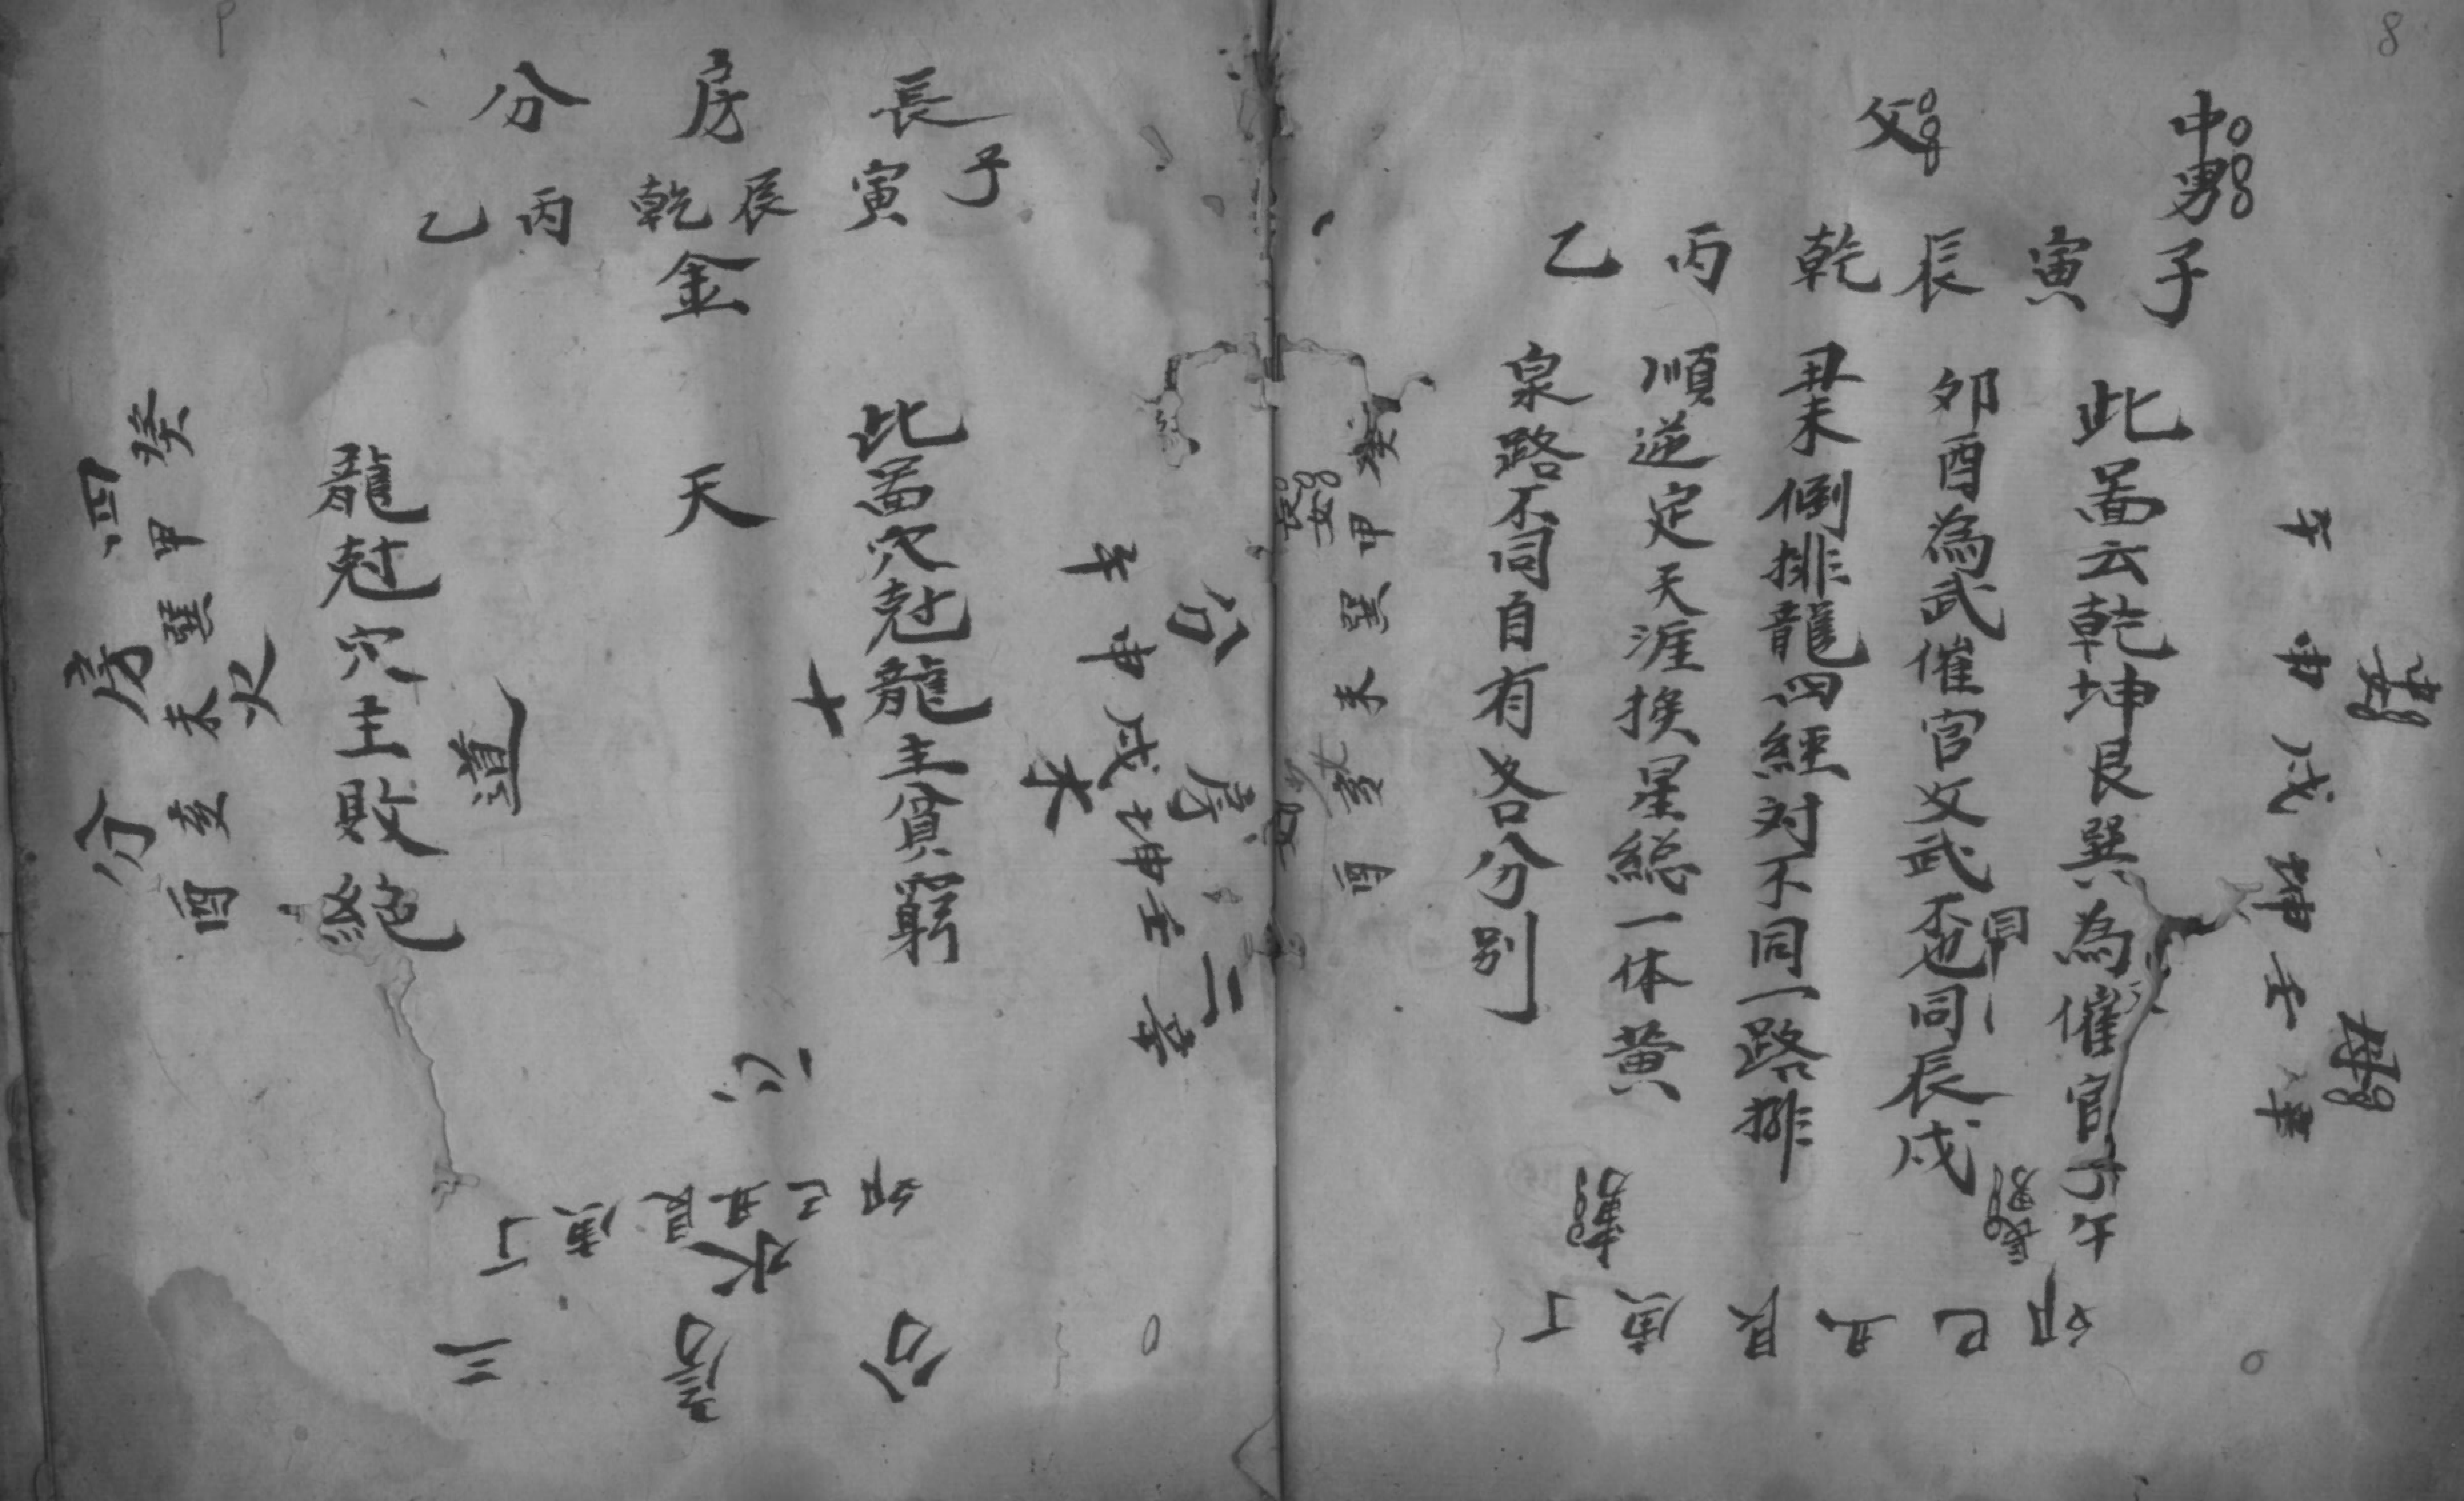 8
中男
父
子寅辰乾丙乙
此啚云乾坤艮巽為催官子午
夘酉為武催官文武不同也同辰戍
丑未倒排龍四經对不同一路排
順逆定天涯换星総一体黄
泉路不同自有各分别
午申戍坤壬辛
長男
夘巳丑艮庚丁
癸甲巽未亥酉
長房分
子寅辰乾丙乙
金
此啚穴尅龍主貧窮
天
十
心
道
龍尅穴主敗絶
二房分
午申戍坤壬辛
木
三房分
夘巳丑艮庚丁
水
四房分
癸甲巽未亥酉
火